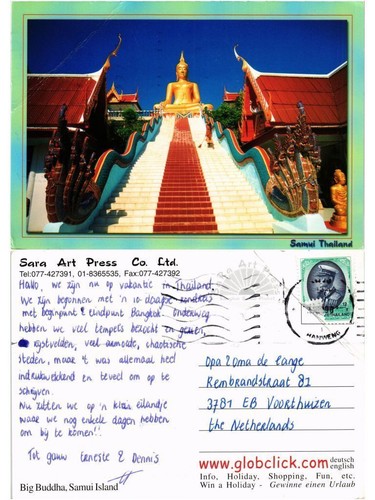 Samui Thailand
Sara Art Press Co. Ltd.
Tel:077-427391, 01-8365535, Fax:077-427392
Hallo, we zijn nu op vakantie in Thailand.
We zijn begonnen met 'n 10 daagse rondreis
met beginpunt & eindpunt Bangkok. Onderweg
hebben we veel tempels bezocht en gezien,
rijstvelden, veel armoede, chaotische
steden, maar 't was allemaal heel
indrukwekkend en teveel om op te
schrijven.
Nu zitten we op 'n klein eilandje
waar we nog enkele dagen hebben
om bij te komen!!
Tot gauw Erneste & Dennis
Big Buddha, Samui Island
THAILAND
Opa & Oma de Lange
Rembrandstraat 81
3781 EB Voorthuizen
the Netherlands
www.globclick.com
deutsch
english
Info, Holiday, Shopping, Fun, etc.
Win a Holiday - Gewinne einen Urlaub